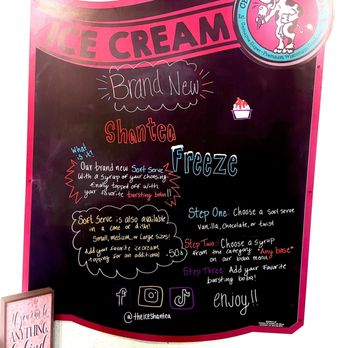 ICE CREAM
Brand New
Shantea
Freeze
What
is it?
Our brand new Soft Serve
With a syrup of your choosing
finally topped off with
your favorite bursting boba!!
Soft Serve is also available
in a cone or dish!
Small, medium, or Large sizes!
Add your favorite ice cream
topping for an additional .50¢
Step One: Choose a soft serve
Vanilla, Chocolate, or twist
Step Two: Choose a syrup
from the category "Any base"
on our boba menu
Step Three: Add your favorite
bursting boba!
enjoy!!
@theiceshantea
If you can be
ANYTHING,
be Kind